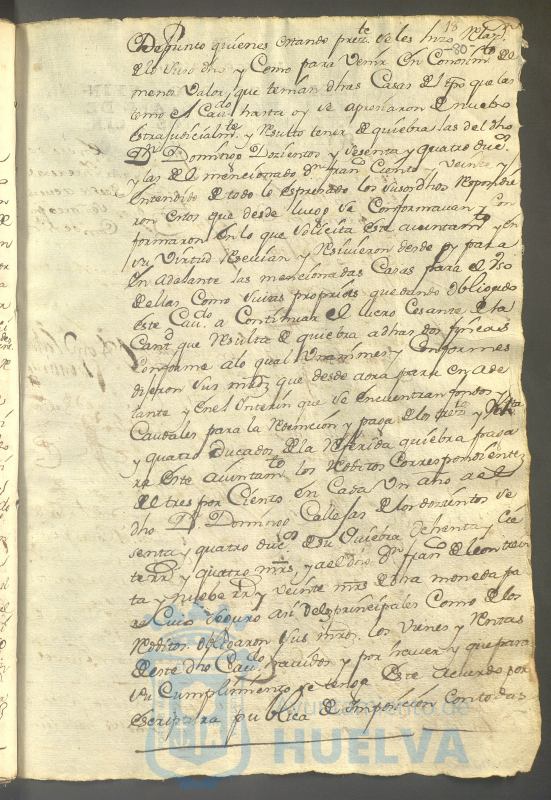 18
-80-
Defunto quienes estando preztes se les hizo
de lo suso dho, y como para venir en Conosimto de
menor valor, que tenian dhas Casas del tpo que las
tomó el Cavdo hasta oy se apresiaron de nuebo
extrajudicialmte y resulto tener de quiebra las del dho
Dn Domingo Dozientos y sesenta y quatro ducs
y las del mencionado Dn Franco Ciento y Veinte y
entendido de todo lo expresado los susodhos respondie
ron estos que desde luego se Conformavan y con
formaron en lo que solicita este ayuntamto y en
su virtud resevian y resivieron desde oy para
en adelante las mencionadas Casas para el uso
de ellas Como suias proprias quedando obligado
este Cavdo a Continuar el lucro Cesante de la
Cantd que resulta de quiebra a dhas dos fincas
Conforme a lo qual Unanimes y Conformes
dijeron sus mrds que desde aora para en ade
lante y en el interin que se encuentran fondos y
Caudales para la redencion y paga de los
y quatro ducados de la referida quiebra pagara
este ayuntamto los reditos Correspondientes
de tres por Ciento en Cada Un año a el
dho Dn Domingo Callejas de los dozientos se
senta y quatro ducs de su quiebra
y quatro mrs y a el dho Dn Franco de Leon
ta y nuebe rs y veinte mrs de dha moneda pa
ra Cuio seguro asi de los principales Como de los
reditos obligaron sus mrds los vienes y Rentas
de este dho Cavdo havidos y por haver y que para
su Cumplimiento se tenga este acuerdo por
escriptura publica de imposicion con todas
Ayuntamiento de
HUELVA